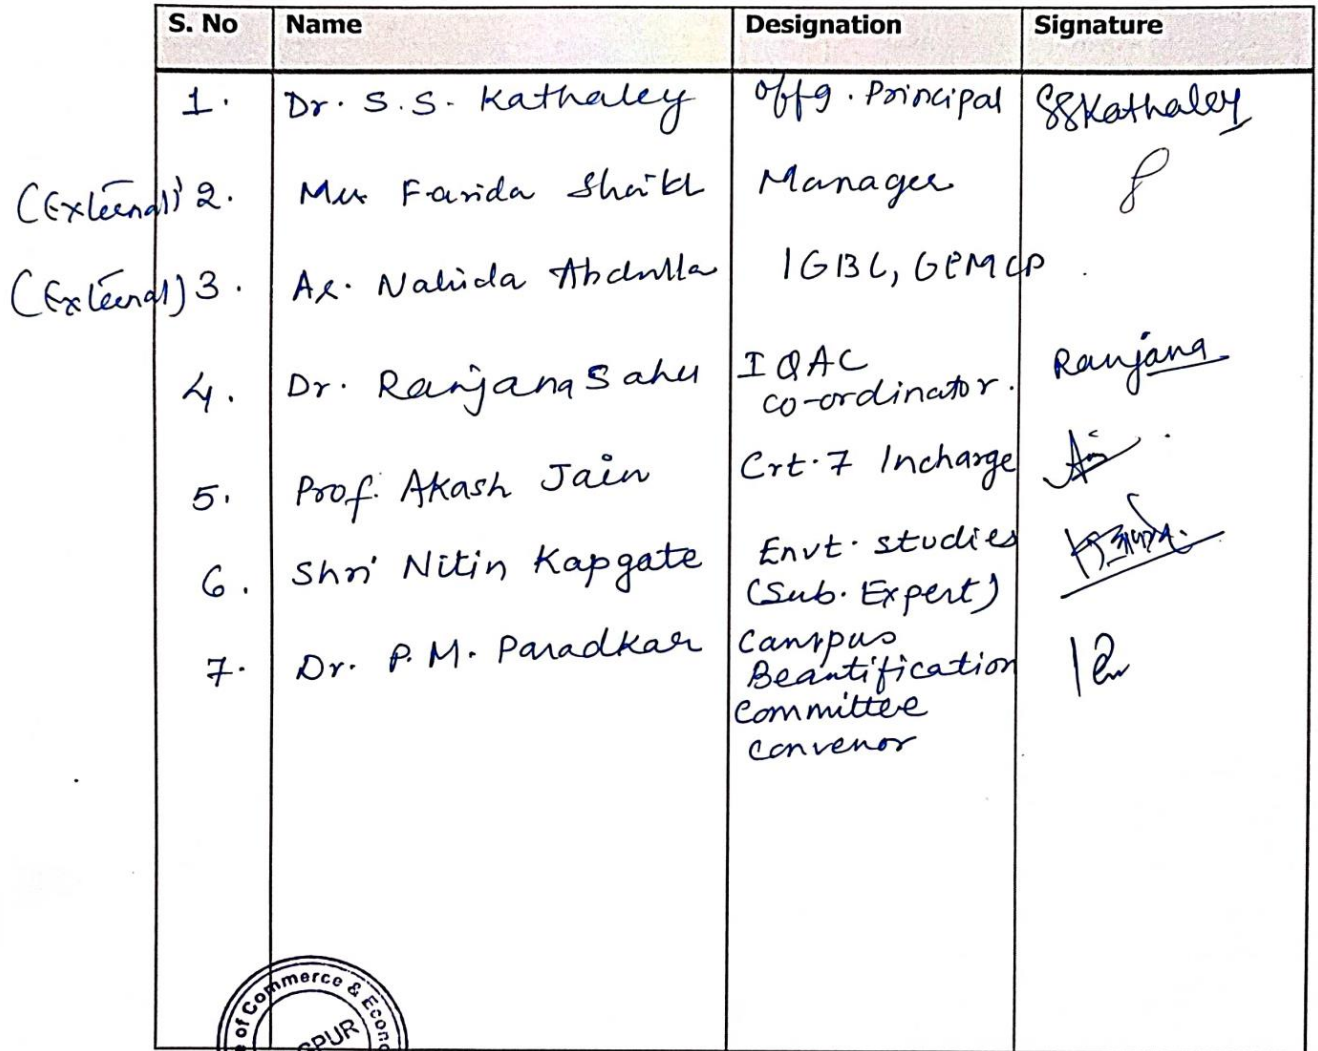 S. No Name Designation Signature
1. Dr. S.S. Kathaley Offg. Principal SSKathaley
(External) 2. Farida Shaikh Manager
(External) 3. Ar. Nahida Abdulla IGBC, GEMCP
4. Dr. Ranjana Sahu IQAC Ranjana
co-ordinator.
5. Prof. Akash Jain Crt.7 Incharge
6. Shri Nitin Kapgate Envt. studies
(Sub. Expert)
7. Dr. P.M. Paradkar Campus
Beautification
Committee
convenor
of Commerce &